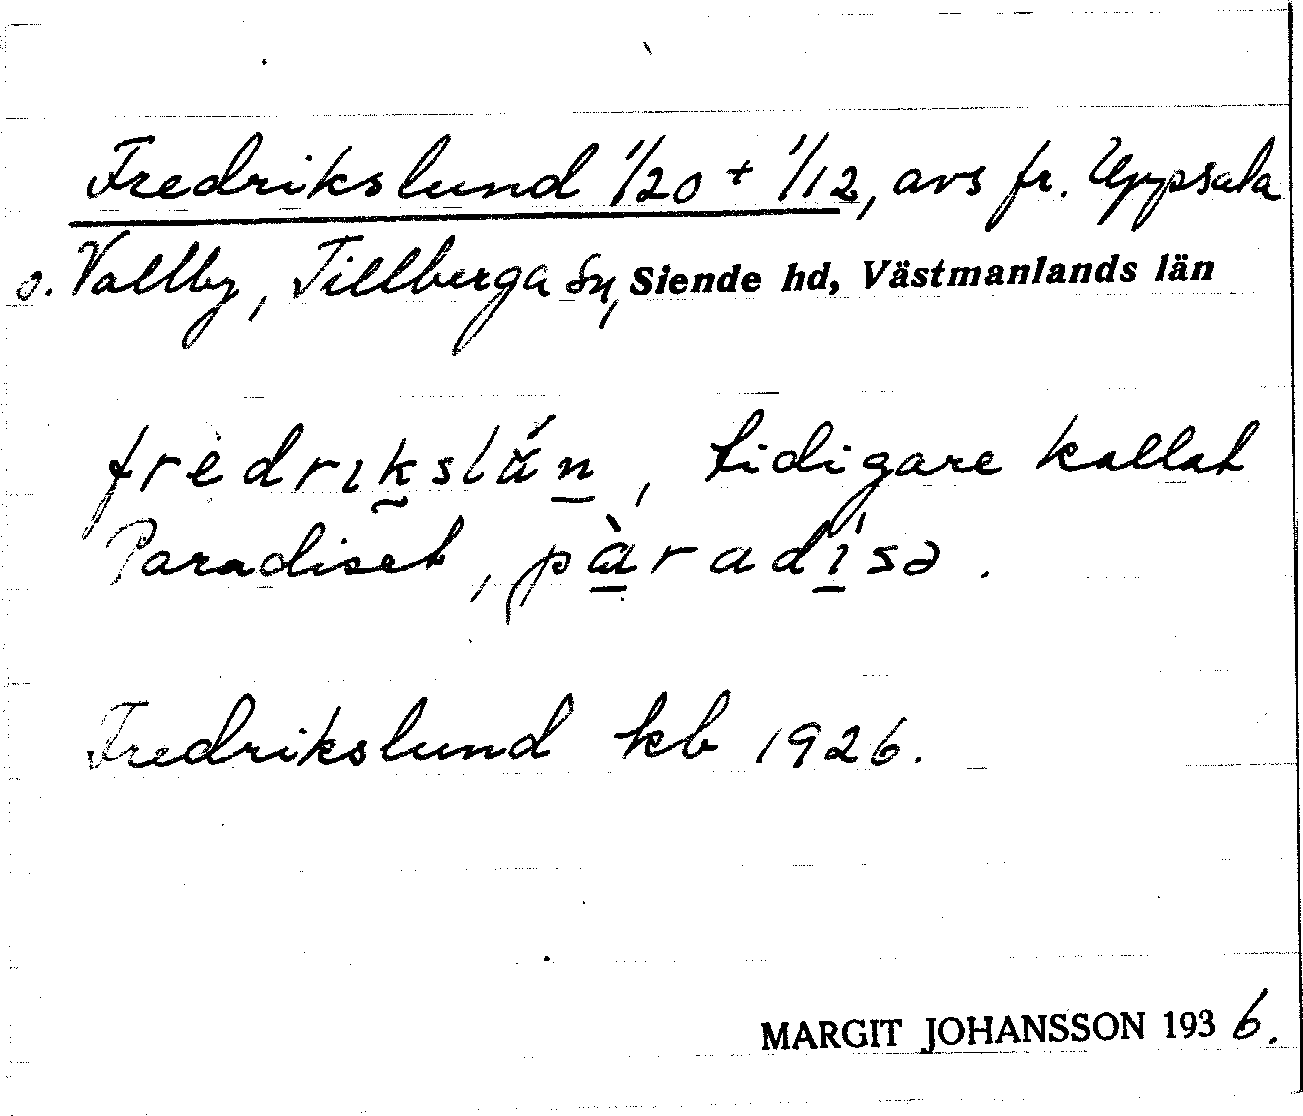 Fredrikslund 1/20 + 1/12, avs fr. Uppsala
o. Vallby, Tillberga sn, Siende hd, Västmanlands län
frèdrıkslǘn, tidigare kallat
Paradiset, pàradísə.
Fredrikslund kb 1926.
MARGIT JOHANSSON 1936.